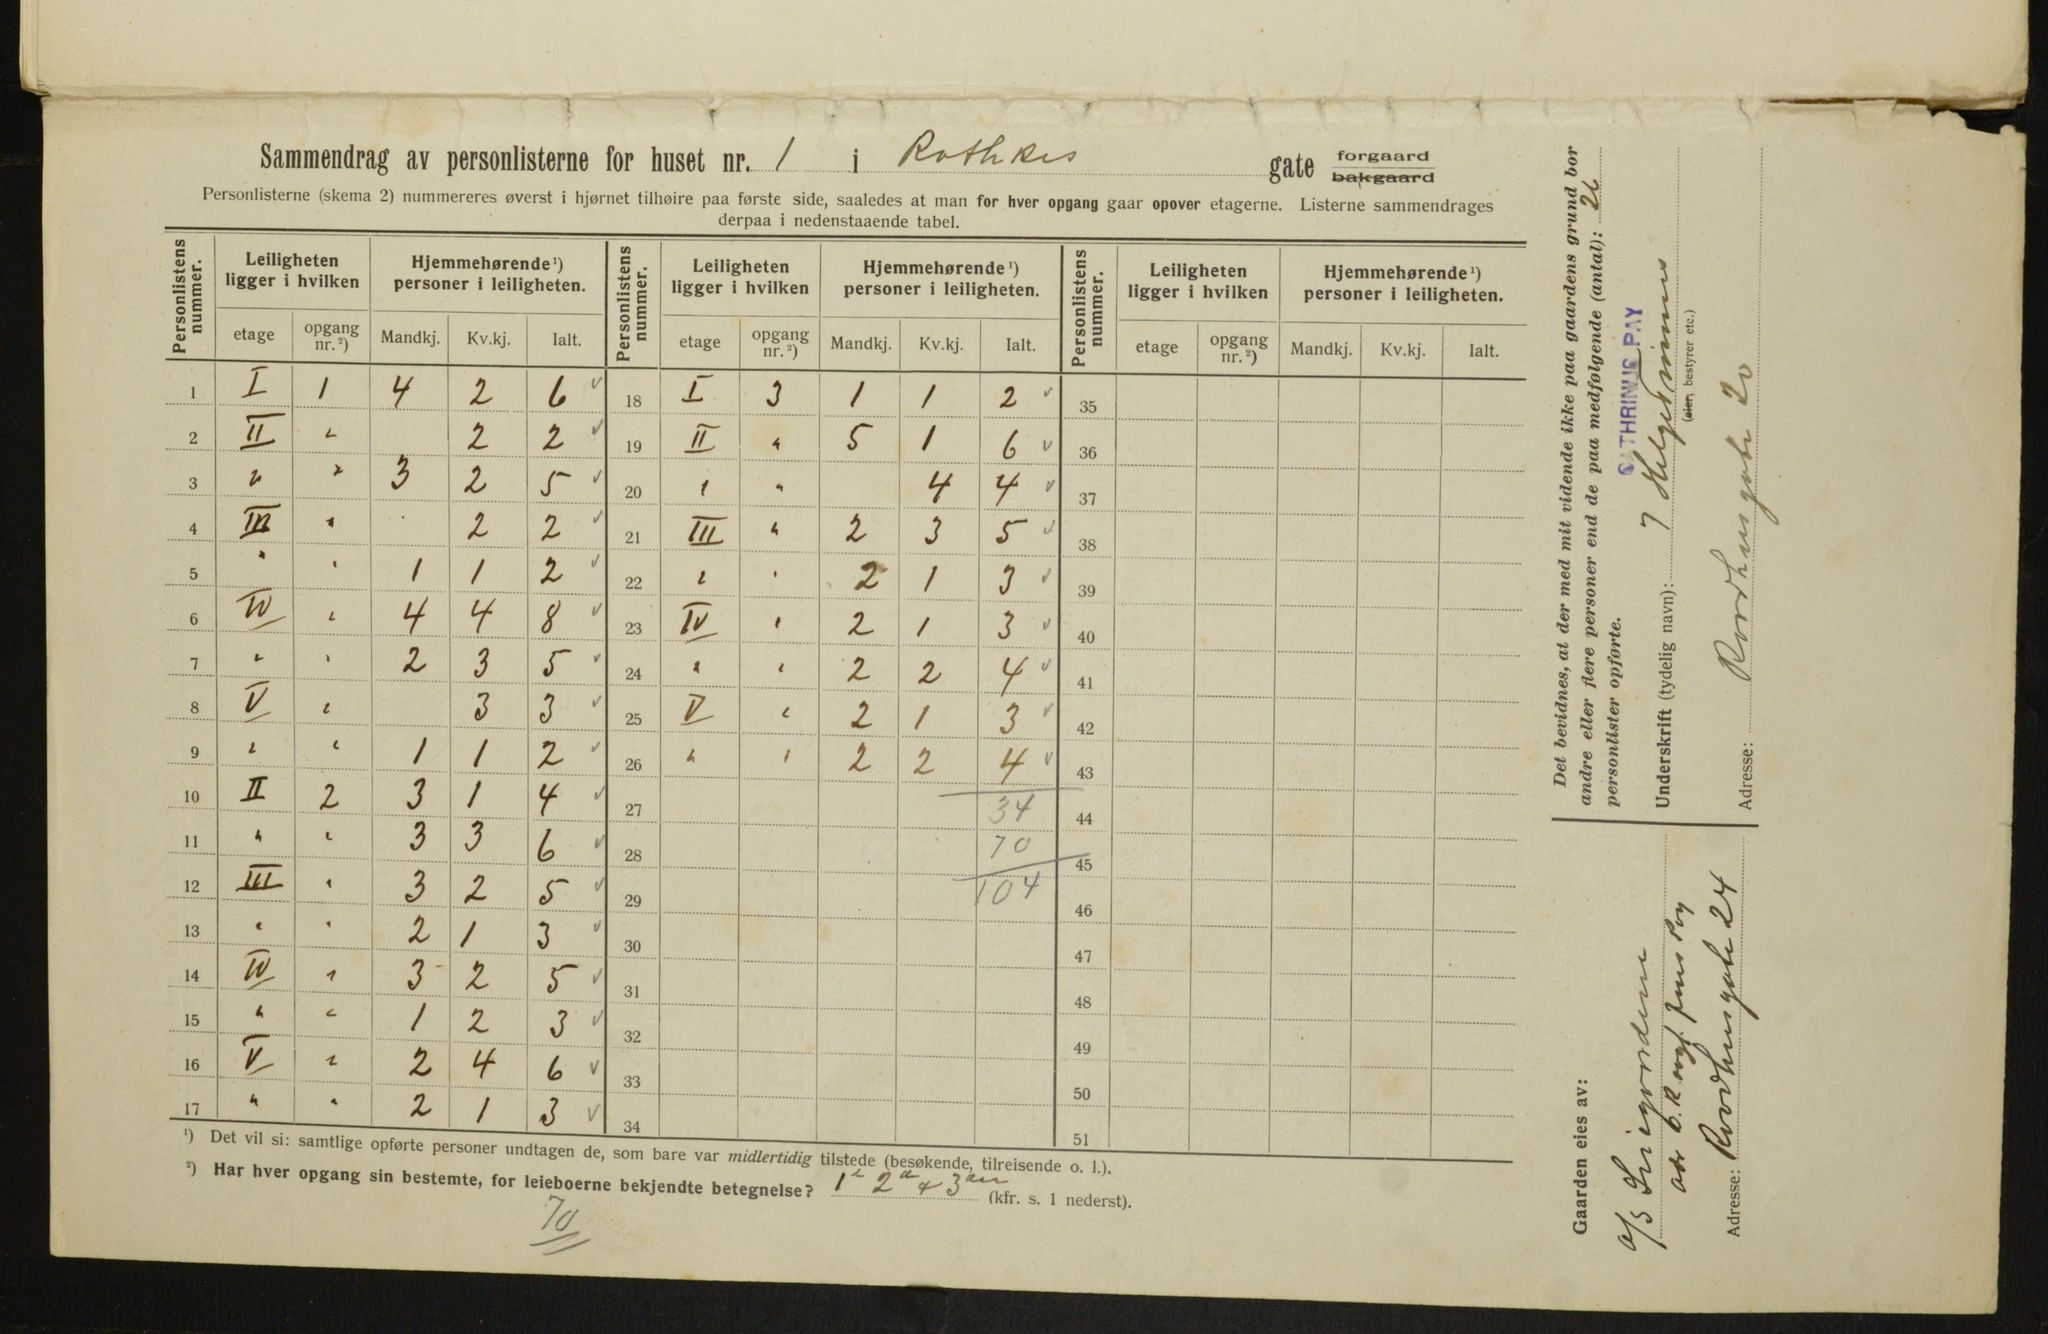 Sammendrag av personlisterne for huset nr. 1 i Rathkes gate forgaard bakgaard
Personlisterne (skema 2) nummereres øverst i hjørnet tilhøire paa første side, saaledes at man for hver opgang gaar opover etagerne. Listerne sammendrages
derpaa i nedenstaaende tabel.
Personlistens nummer. Leiligheten ligger i hvilken Hjemmehørende ¹) personer i leiligheten. Personlistens nummer. Leiligheten ligger i hvilken Hjemmehørende ¹) personer i leiligheten. Personlistens nummer. Leiligheten ligger i hvilken Hjemmehørende ¹) personer i leiligheten.
etage opgang nr. ²) Mandkj. Kv.kj. Ialt. etage opgang nr. ²) Mandkj. Kv.kj. Ialt. etage opgang nr. ²) Mandkj. Kv.kj. Ialt.
1 I 1 4 2 6 ✓ 18 I 3 1 1 2 ✓ 35
2 II " 2 2 ✓ 19 II " 5 1 6 ✓ 36
3 " " 3 2 5 ✓ 20 " " 4 4 ✓ 37
4 III " 2 2 ✓ 21 III " 2 3 5 ✓ 38
5 " " 1 1 2 ✓ 22 " " 2 1 3 ✓ 39
6 IV " 4 4 8 ✓ 23 IV " 2 1 3 ✓ 40
7 " " 2 3 5 ✓ 24 " " 2 2 4 ✓ 41
8 V " 3 3 ✓ 25 V " 2 1 3 ✓ 42
9 " " 1 1 2 ✓ 26 " " 2 2 4 ✓ 43
10 II 2 3 1 4 ✓ 27 34 44
11 " " 3 3 6 ✓ 28 70 45
12 III " 3 2 5 ✓ 29 104 46
13 " " 2 1 3 ✓ 30 47
14 IV " 3 2 5 ✓ 31 48
15 " " 1 2 3 ✓ 32 49
16 V " 2 4 6 ✓ 33 50
17 " " 2 1 3 ✓ 34 51
¹) Det vil si: samtlige opførte personer undtagen de, som bare var midlertidig tilstede (besøkende, tilreisende o. l.).
²) Har hver opgang sin bestemte, for leieboerne bekjendte betegnelse? 1 2 3 (kfr. s. 1 nederst).
70
Det bevidnes, at der med mit vidende ikke paa gaardens grund bor
andre eller flere personer end de paa medfølgende (antal): 26
personlister opførte.
CATHRINUS PAY
Underskrift (tydelig navn):
(eier, bestyrer etc.)
Adresse: Raadhusgaten 20
Gaarden eies av:
A/S
Adresse: Raadhusgaten 24